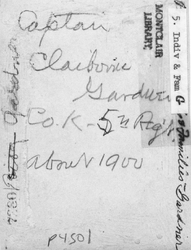 Captain
Claiborne
Gardner
Co. K - 5th Reg't
about 1900
P4501
MONTCLAIR
LIBRARY.
5. Indiv & Fam
Families - Gardner
Gardner